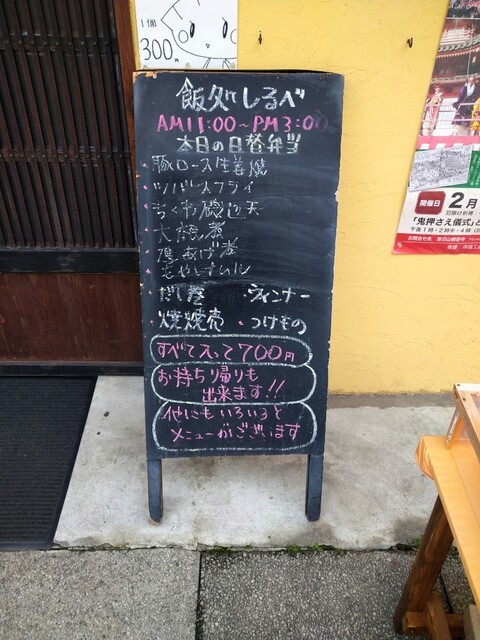 1個
300円
飯処 しるべ
AM11:00〜PM3:00
本日の日替弁当
豚ロース生姜焼
・ツバスフライ
ちくわ磯辺天
大根煮
厚あげ煮
もやしナムル
だし巻
・ウィンナー
・焼焼売
・つけもの
すべて入って700円
お持ち帰りも
出来ます!!
他にもいろいろと
メニューがございます
開催日
2月
「鬼押さえ儀式」と